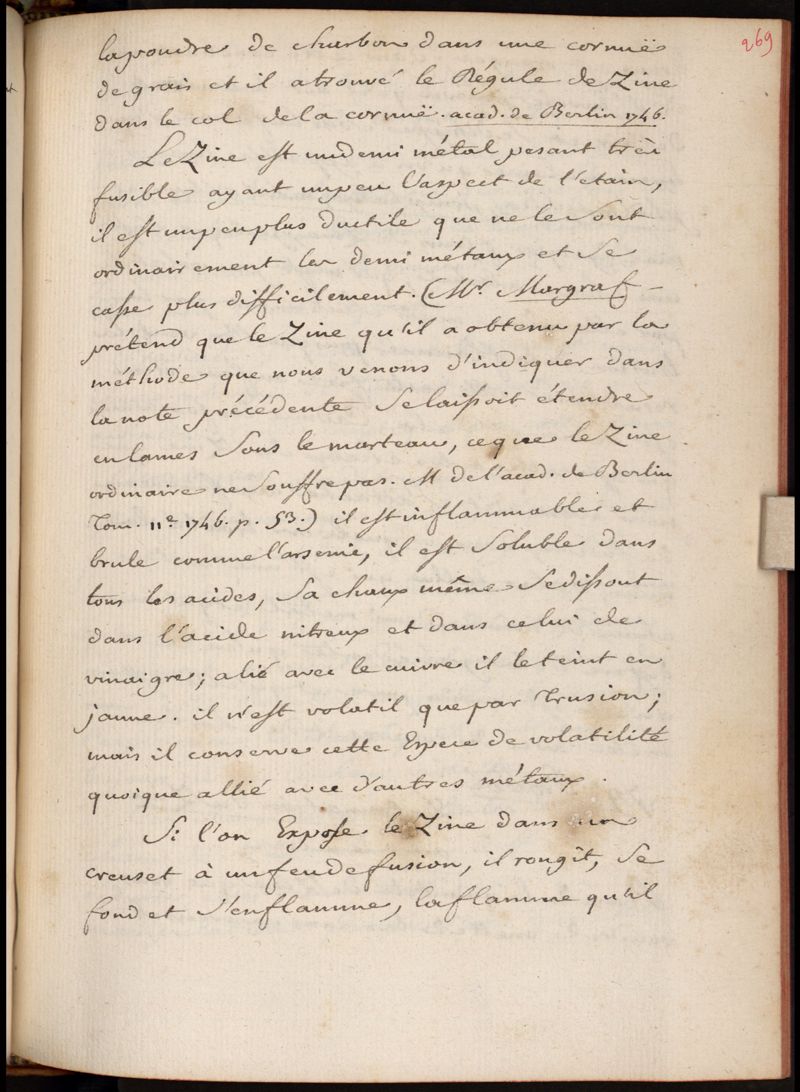 269
la poudre de charbon dans une cornuë
de grais et il a trouvé le Régule de Zinc
dans le col de la cornuë. acad. de Berlin 1746.
Le Zinc est un demi métal pesant très
fusible ayant un peu l'aspect de l'étain,
il est un peu plus ductile que ne le sont
ordinairement les demi métaux et se
casse plus difficilement. (Mr. Margraf
prétend que le Zinc qu'il a obtenu par la
méthode que nous venons d'indiquer dans
la note précédente se laissoit étendre
en lames sous le marteau, ce que le Zinc
ordinaire ne souffre pas. M de l'acad. de Berlin
Tom. 11e. 1746. p. 53.) il est inflammable et
brule comme l'arsenic, il est soluble dans
tous les acides, sa chaux même se dissout
dans l'acide nitreux et dans celui de
vinaigre; alié avec le cuivre il le teint en
jaune. il n'est volatil que par Trusion;
mais il conserve cette Espece de volatilité
quoique allié avec d'autres métaux.
Si l'on Expose le Zinc dans un
creuset à un feu de fusion, il rougît, se
fond et s'enflamme, la flamme qu'il